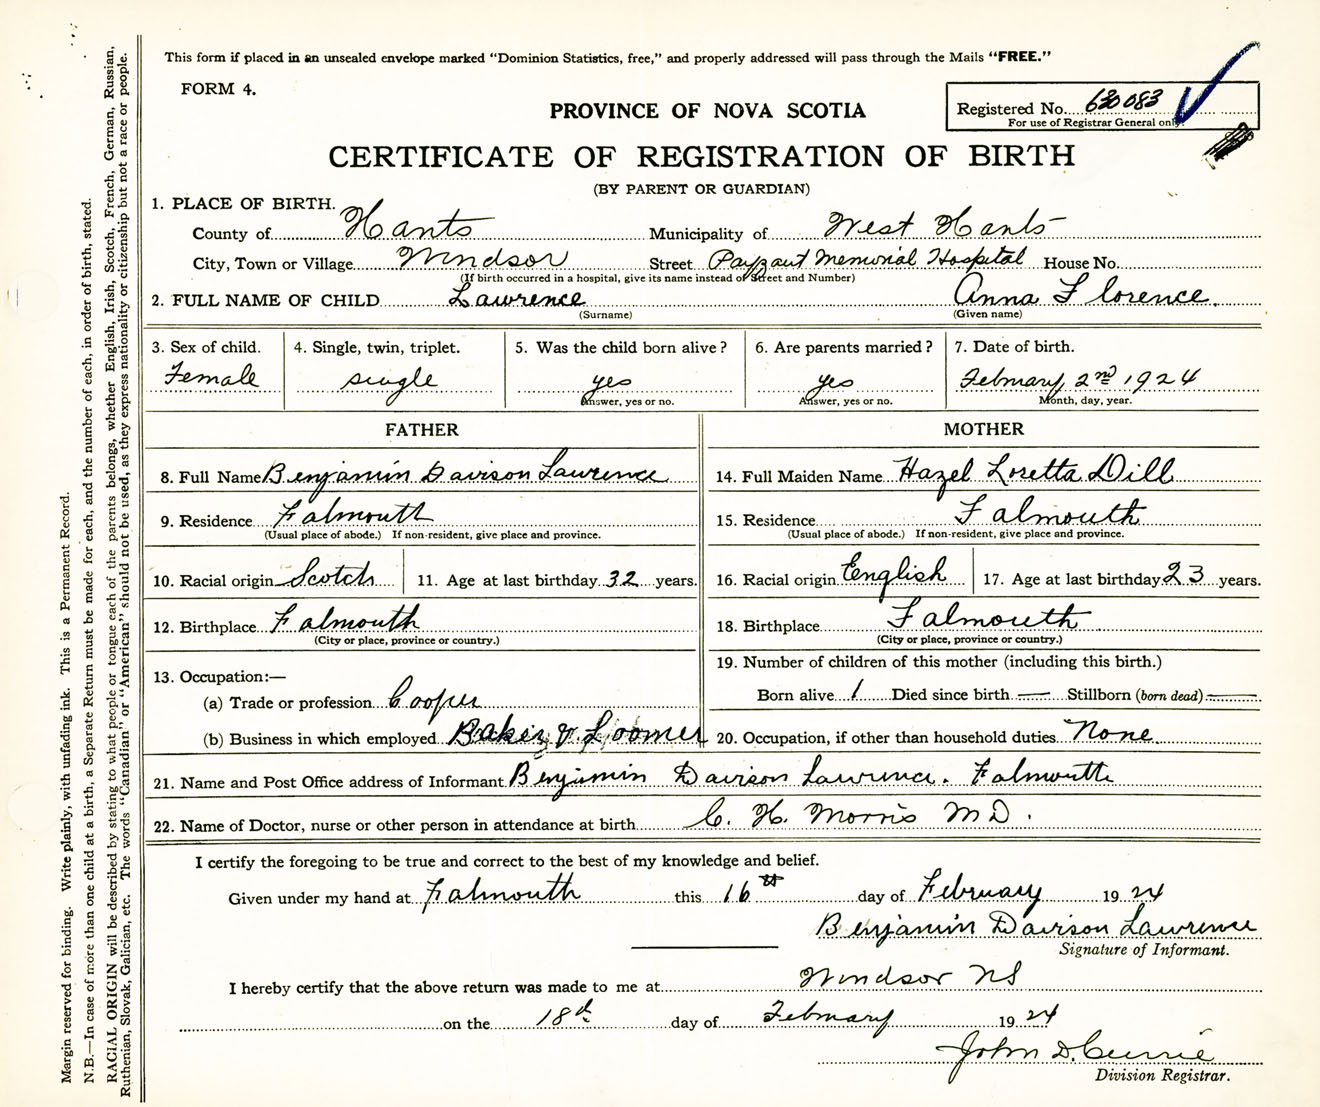 This form if placed in an unsealed envelope marked "Dominion Statistics, free," and properly addressed will pass through the Mails "FREE."
FORM 4.
PROVINCE OF NOVA SCOTIA
Registered No. 630083
For use of Registrar General only.
CERTIFICATE OF REGISTRATION OF BIRTH
(BY PARENT OR GUARDIAN)
1. PLACE OF BIRTH.
County of Hants Municipality of West Hants
City, Town or Village Windsor Street Payzant Memorial Hospital House No.
(If birth occurred in a hospital, give its name instead of Street and Number)
2. FULL NAME OF CHILD Lawrence Anna Florence.
(Surname) (Given name)
3. Sex of child. 4. Single, twin, triplet. 5. Was the child born alive? 6. Are parents married? 7. Date of birth.
Female single yes yes February 2nd 1924
Answer, yes or no. Answer, yes or no. Month, day, year.
FATHER MOTHER
8. Full Name Benjamin Davison Lawrence 14. Full Maiden Name Hazel Loretta Dill
9. Residence Falmouth 15. Residence Falmouth
(Usual place of abode.) If non-resident, give place and province. (Usual place of abode.) If non-resident, give place and province.
10. Racial origin Scotch 11. Age at last birthday 32 years. 16. Racial origin English 17. Age at last birthday 23 years.
12. Birthplace Falmouth 18. Birthplace Falmouth
(City or place, province or country.) (City or place, province or country.)
13. Occupation:— 19. Number of children of this mother (including this birth.)
(a) Trade or profession Cooper Born alive 1 Died since birth — Stillborn (born dead) —
(b) Business in which employed Baker & Loomer 20. Occupation, if other than household duties None
21. Name and Post Office address of Informant Benjamin Davison Lawrence. Falmouth
22. Name of Doctor, nurse or other person in attendance at birth C. H. Morris M D.
I certify the foregoing to be true and correct to the best of my knowledge and belief.
Given under my hand at Falmouth this 16th day of February 1924
Benjamin Davison Lawrence
Signature of Informant.
I hereby certify that the above return was made to me at Windsor NS
on the 18th day of February 1924
John D. Currie
Division Registrar.
Margin reserved for binding. Write plainly, with unfading ink. This is a Permanent Record.
N.B.—In case of more than one child at a birth, a Separate Return must be made for each, and the number of each, in order of birth, stated.
RACIAL ORIGIN will be described by stating to what people or tongue each of the parents belongs, whether English, Irish, Scotch, French, German, Russian,
Ruthenian, Slovak, Galician, etc. The words "Canadian" or "American" should not be used, as they express nationality or citizenship but not a race or people.